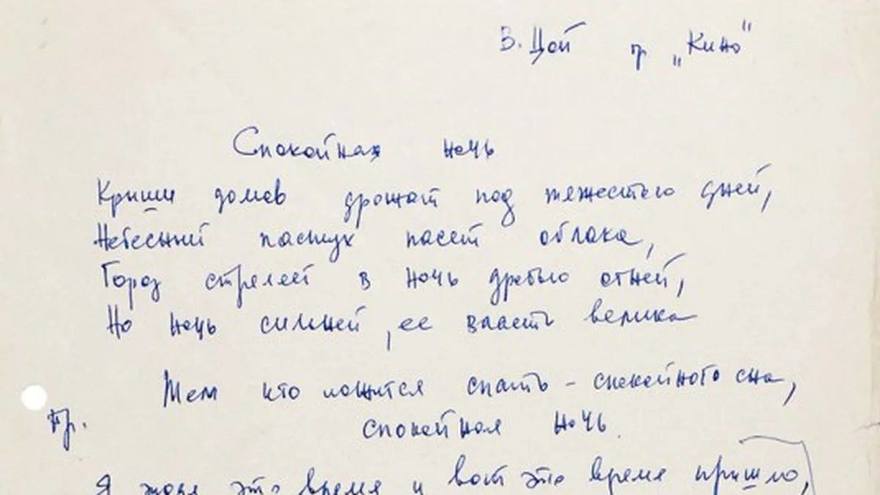 В. Цой гр „Кино"
Спокойная ночь
Крыши домов дрожат под тяжестью дней,
Небесный пастух пасет облака,
Город стреляет в ночь дробью огней,
Но ночь сильней, ее власть велика
Тем кто ложится спать – спокойного сна,
Пр.
спокойная ночь.
Я ждал это время и вот это время пришло,